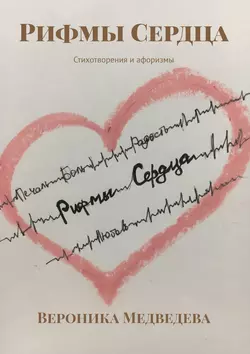 Рифмы Сердца
Стихотворения и афоризмы
Печаль Боль Радость
Рифмы Сердца
Любовь
Вероника Медведева